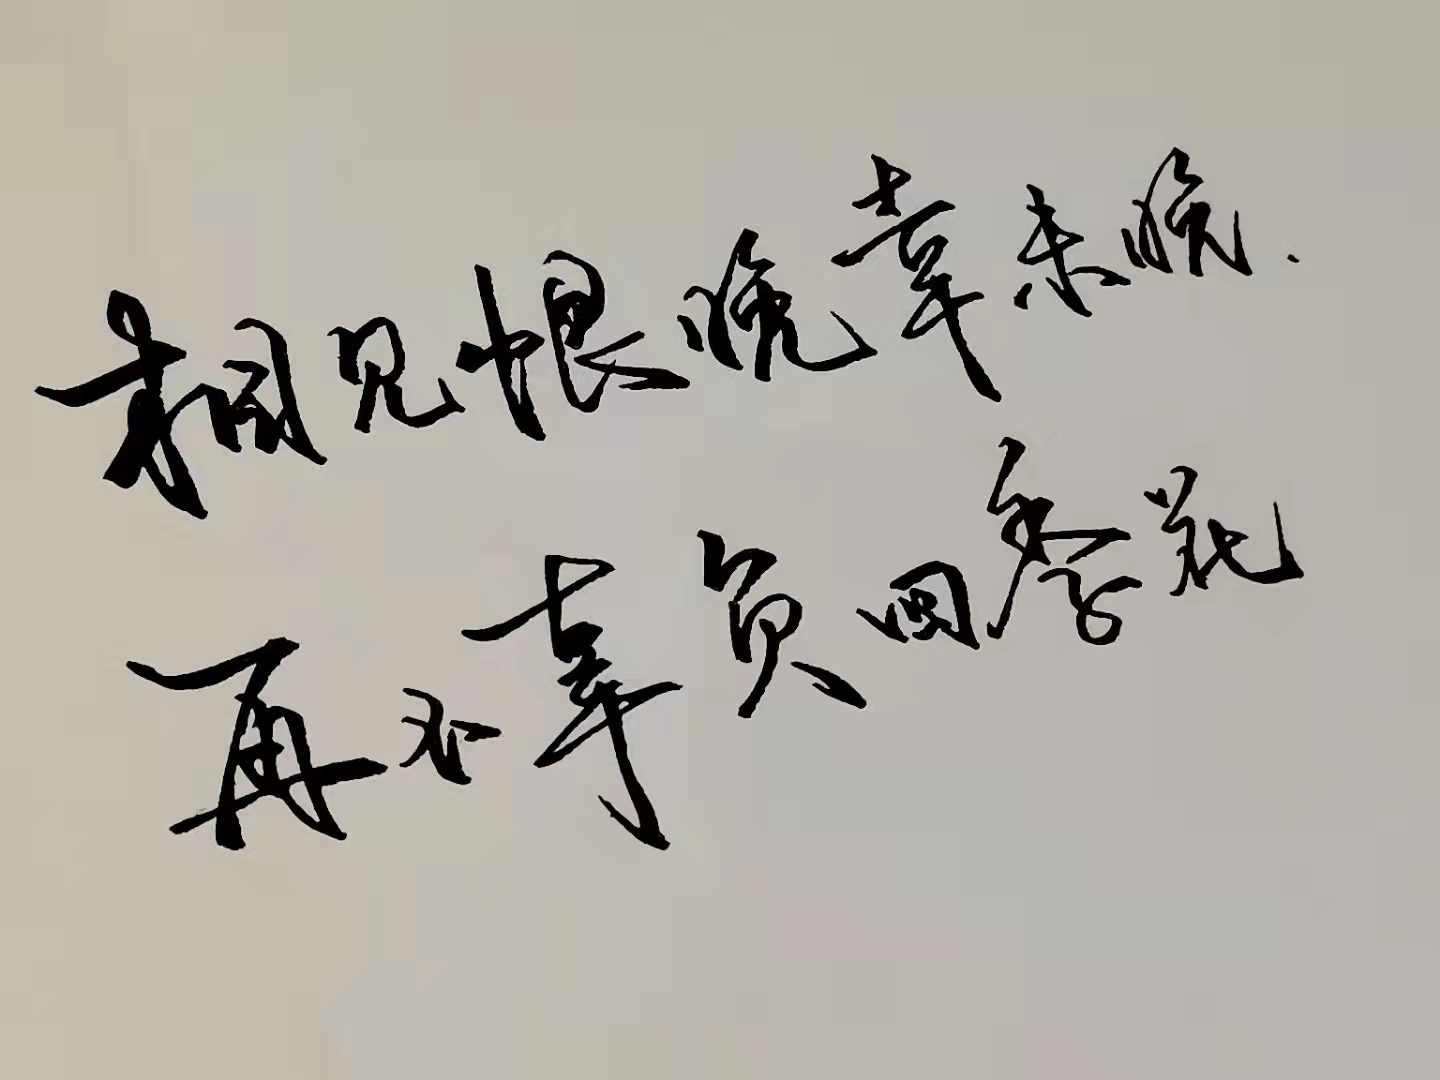 相见恨晚幸未晚.
再不辜负四季花